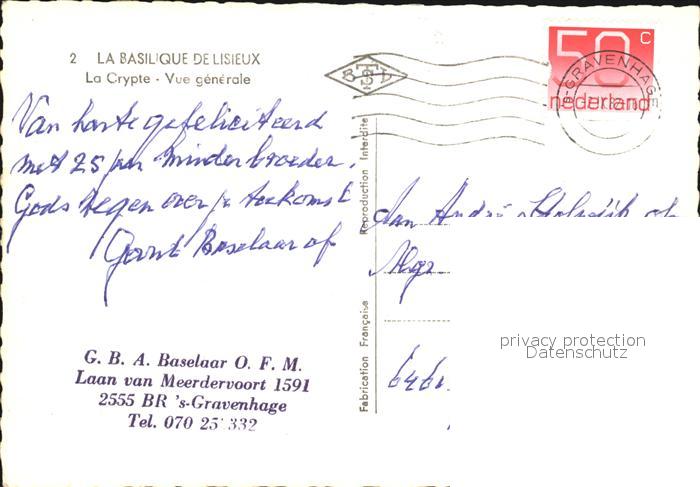 2 LA BASILIQUE DE LISIEUX
La Crypte - Vue générale
50 C
nederland
'S-GRAVENHAGE
Van harte gefeliciteerd
met 25 jaar Minderbroeder.
Gods zegen over je toekomst
Gerrit Baselaar ofm
Aan André
6461
G. B. A. Baselaar O. F. M.
Laan van Meerdervoort 1591
2555 BR 's-Gravenhage
Tel. 070 25 332
Fabrication Française
Reproduction Interdite
privacy protection
Datenschutz